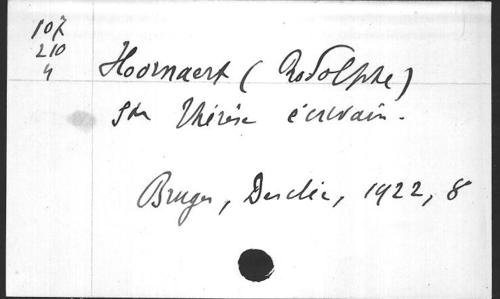 107
210
4
Hoornaert (Rodolphe)
Ste Thérèse écrivain.
Bruges, Desclée, 1922, 8